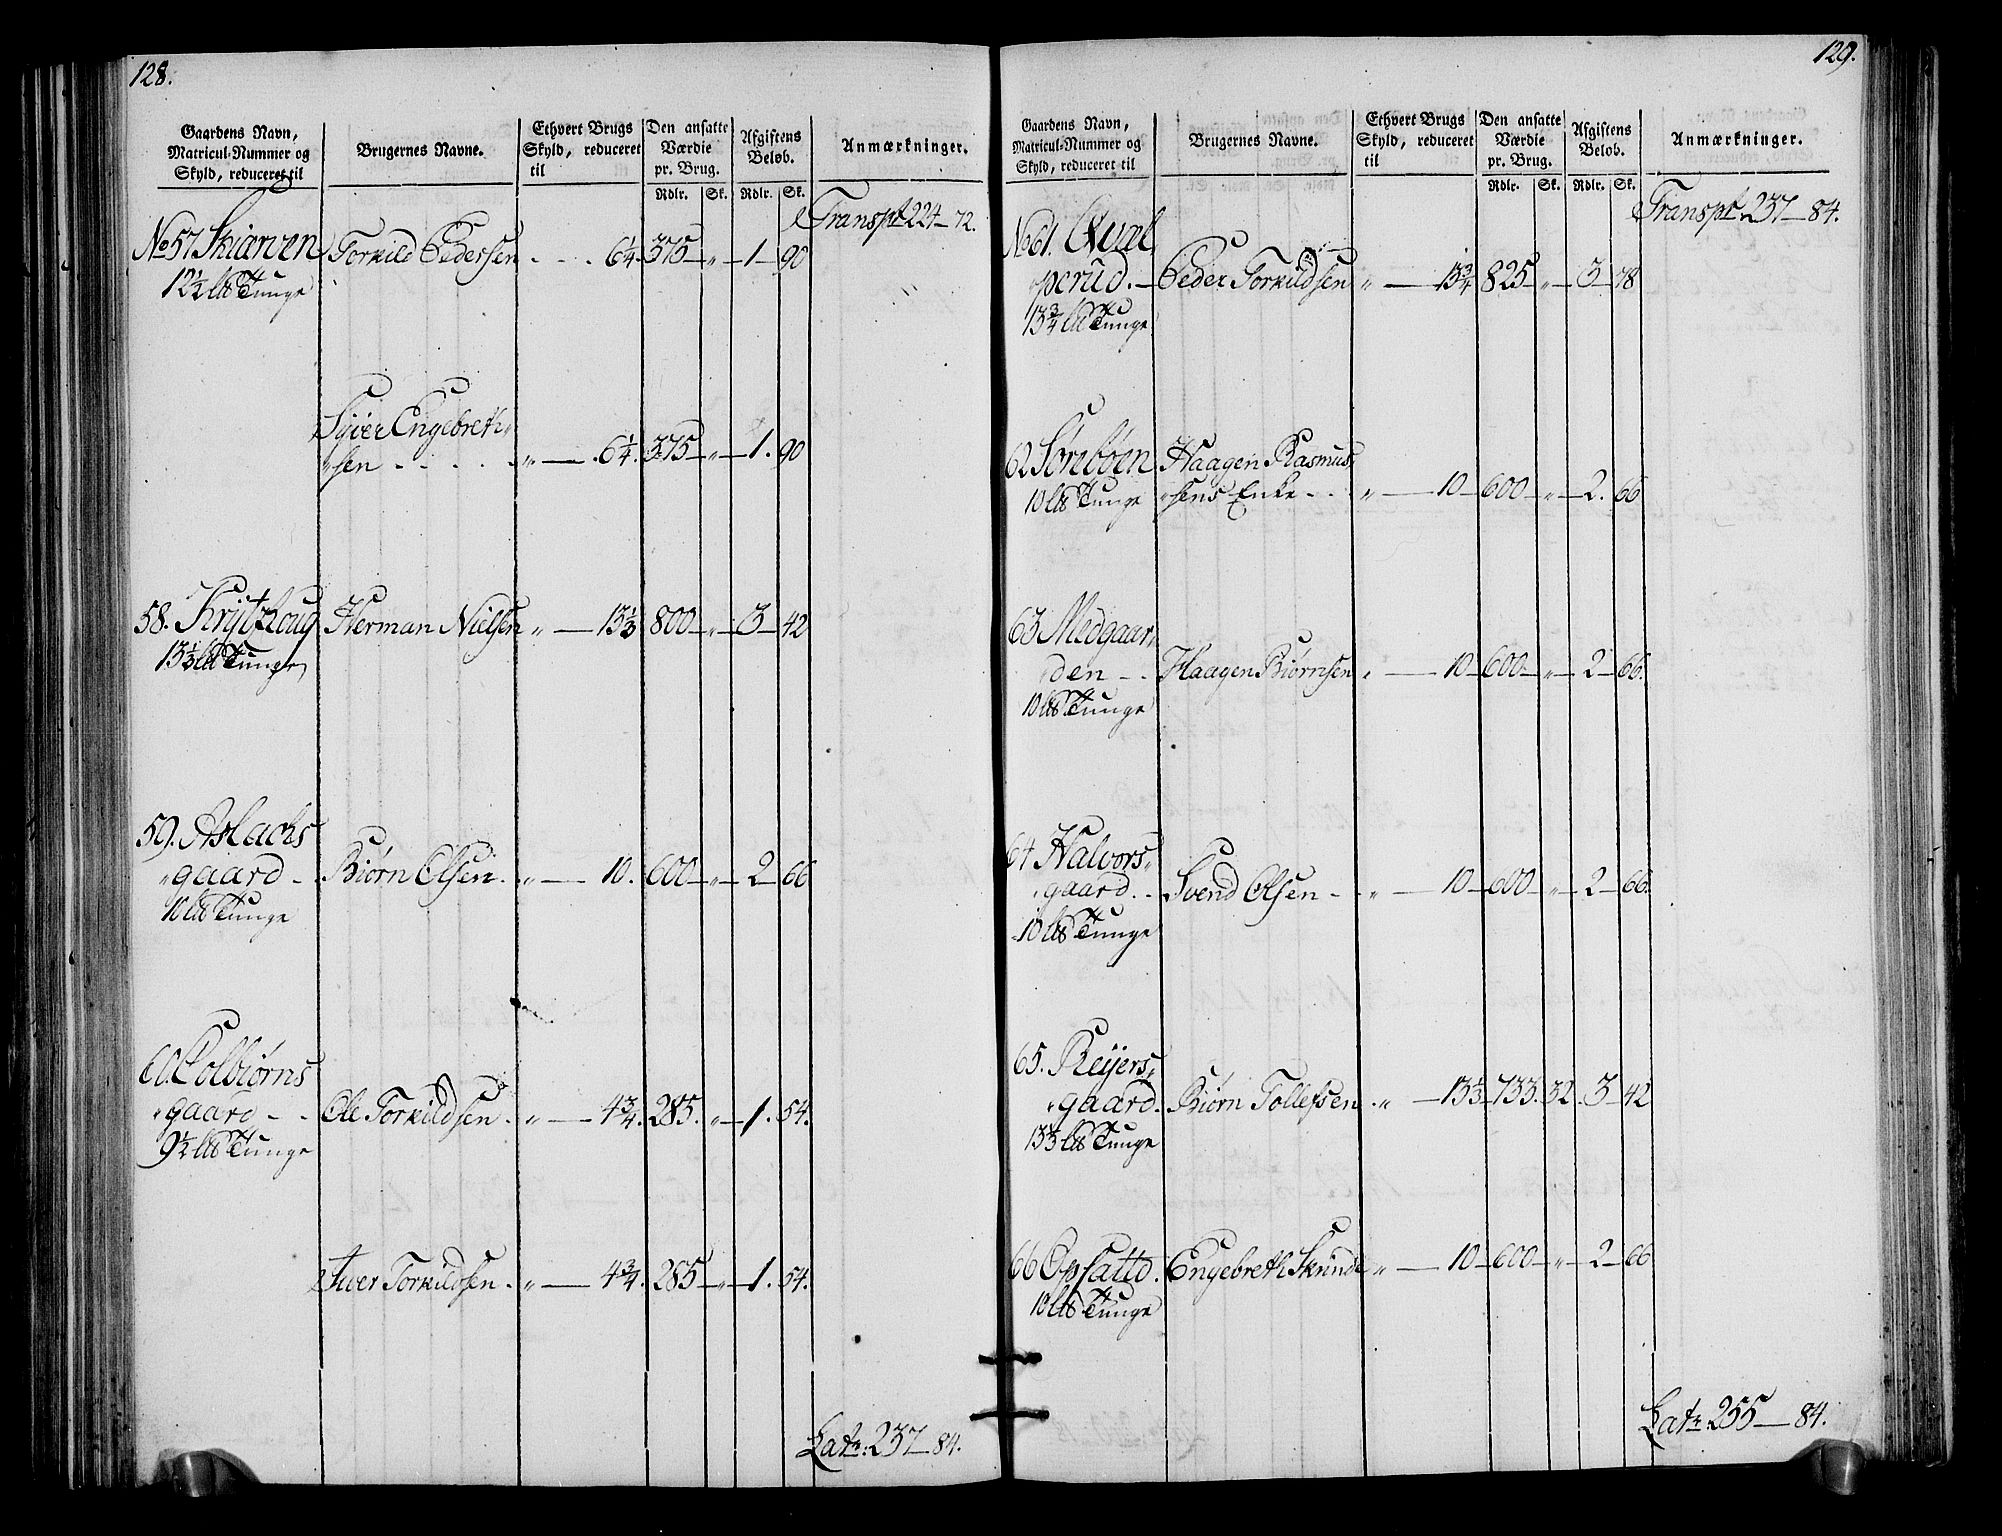 128.
Gaardens Navn, Matricul-Nummer og Skyld, reduceret til
Brugernes Navne.
Ethvert Brugs Skyld, reduceret til
Den ansatte Værdie pr. Brug.
Afgiftens Beløb.
Anmærkninger.
Rdlr. Sk. Rdlr. Sk.
Transpt 224 - 72.
No 57. Skiærven Torkild Pedersen - - . 6¼. 375 - " - 1 - 90
12½ lb Tunge
Syver Engebreth-
sen - - - - - " - . 6¼. 375 - " - 1. 90
58. Krytzhoug Herman Nielsen " - 13⅓ 800 - " - 3 - 42
13⅓ lb Tunge
59. Aslachs
gaard - Biørn Olsen - " - 10. 600 - " - 2 - 66
10 lb Tunge
60. Colbiørns
gaard - - Ole Torkildsen - " - 4¾. 285. " - 1. 54.
9½ lb Tunge
Iver Torkildsen - " - 4¾. 285 - " - 1. 54.
Latr: 237 - 84.
129.
Gaardens Navn, Matricul-Nummer og Skyld, reduceret til
Brugernes Navne.
Ethvert Brugs Skyld, reduceret til
Den ansatte Værdie pr. Brug.
Afgiftens Beløb.
Anmærkninger.
Rdlr. Sk. Rdlr. Sk.
Transpt. 237 - 84.
No 61. Qvæl
perud. - Peder Torkildsen " - 13¾ 825 - " - 3 - 78
13¾ lb Tunge
62 Sørebøen Haagen Rasmus-
10 lb Tunge sens Enke - - " - 10 - 600 - " - 2. 66
63 Medgaar-
den - - Haagen Biørnsen " - 10 - 600 - " - 2 - 66.
10 lb Tunge
64 Halvors-
gaard. - Svend Olsen - " - 10 - 600 - " - 2 - 66.
10 lb Tunge
65. Reijers-
gaard. Biørn Tollefsen. " - 13⅓ - 733. 32. 3 - 42
13⅓ lb Tunge
66 Opsattd. Engebreth Skrinde " - 10 - 600 - " - 2 - 66
10 lb Tunge
Latr: 255 - 84.